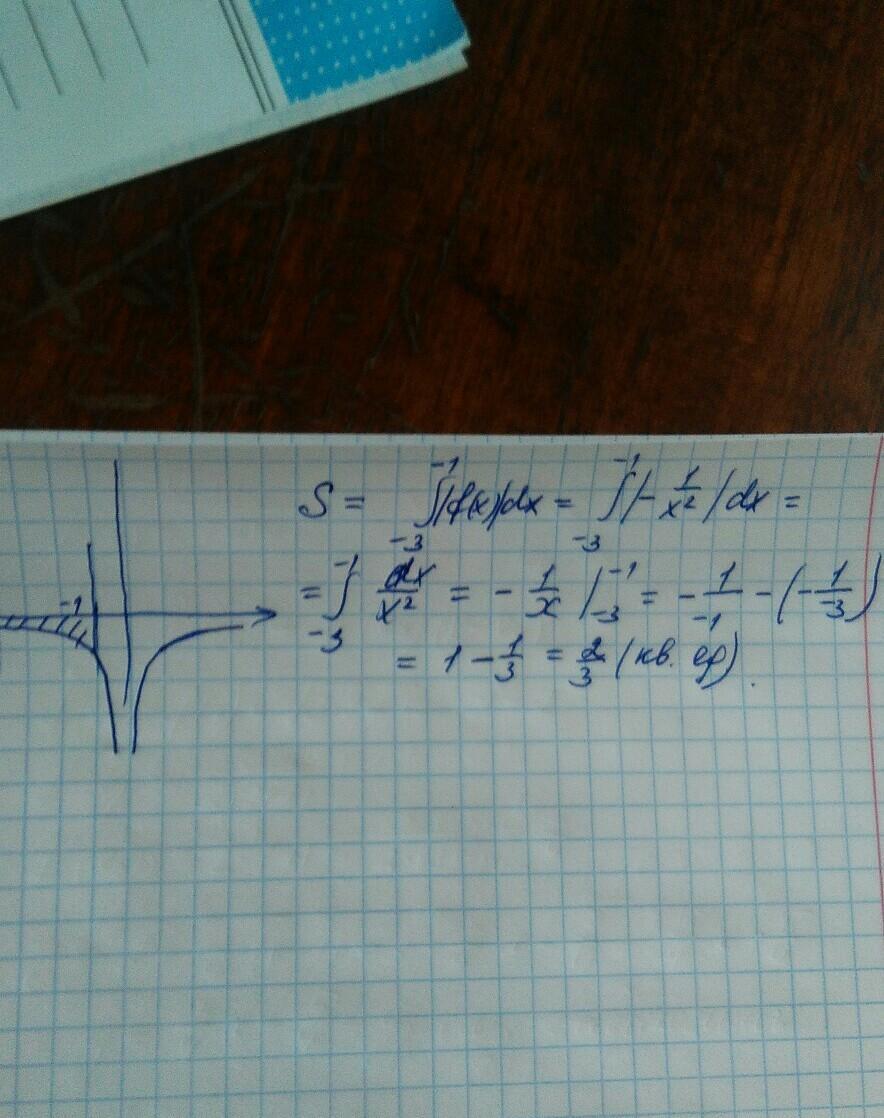 S = ∫₋₃⁻¹ |f(x)|dx = ∫₋₃⁻¹ |-1/x²|dx =
= ∫₋₃⁻¹ dx/x² = -1/x |₋₃⁻¹ = -1/-1 - (-1/-3)
-1
= 1 - 1/3 = 2/3 (кв. ер).